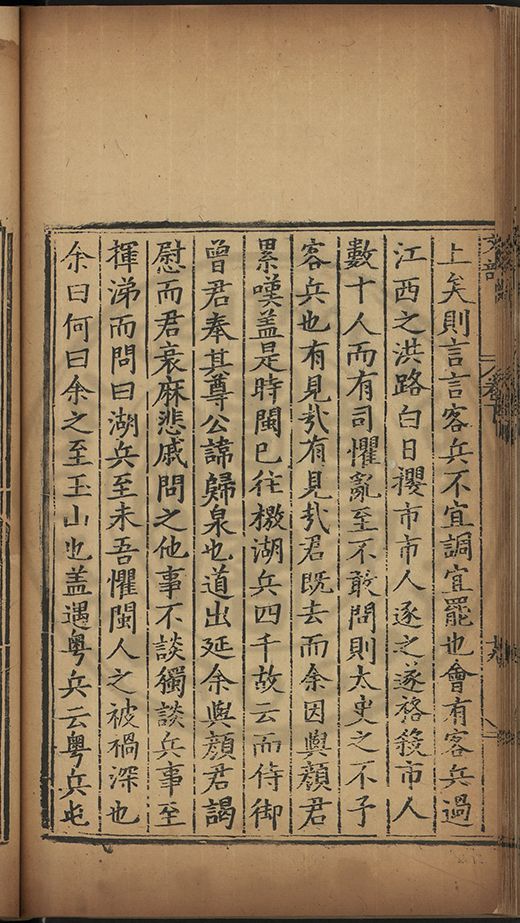 上矣則言言客兵不宜調宜罷也會有客兵過
江西之洪路白日攫市市人逐之遂格殺市人
數十人而有司懼亂至不敢問則太史之不予
客兵也有見㢤有見㢤君既去而余因與顔君
累嘆盖是時閩已往檄湖兵四千故云而侍御
曾君奉其尊公諱歸泉也道出延余與顔君謁
慰而君衰麻悲戚問之他事不談獨談兵事至
揮涕而問曰湖兵至未吾懼閩人之被禍深也
余曰何曰余之至玉山也盖遇粤兵云粤兵屯